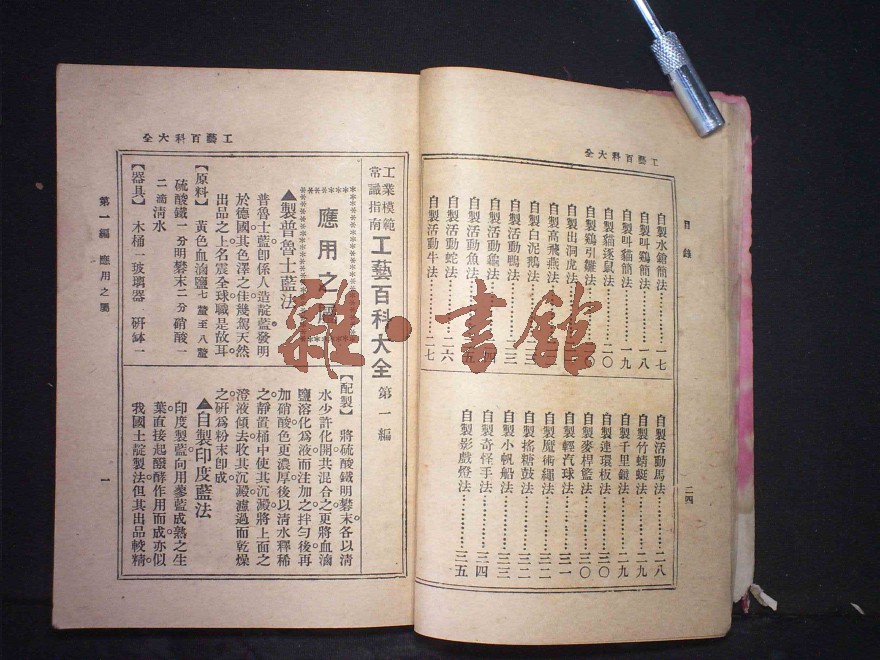 工藝百科大全
目錄
自製水鎗簡法………一七
自製叫鷄簡法………一八
自製叫貓簡法………一九
自製貓逐鼠法………二〇
自製鷄引雛法
自製出洞虎法
自製高飛燕法
自製白泥鵝法
自製活動鴨法
自製活動龜法
自製活動魚法
自製活動蛇法………二六
自製活動牛法………二七
自製活動馬法………二八
自製竹蜻蜓法………二九
自製千里鏡法………二九
自製連環板法………三〇
自製麥桿籃法………三〇
自製輕汽球法………三一
自製魔術繩法………三二
自製搖糖鼓法………三二
自製小帆船法………三三
自製奇怪手法………三四
自製影戲燈法………三五
二四
工藝百科大全
工業模範
常識指南
工藝百科大全 第一編
應用之
▲製普魯士藍法
普魯士藍卽係人造靛藍發明
於德國其色澤之佳幾駕天然
出品之上名震全球職是故耳
【原料】 黃色血滷鹽七釐至八釐
硫酸鐵一分明礬末二分硝酸一
二滴淸水
【器具】 木桶一玻璃器一研缽一
【配製】 將硫酸鐵明礬末各以淸
水少許化開共混合之更將血滷
鹽溶化爲液而注加之拌勻後再
加硝酸色更濃厚後以淸水釋稀
之靜置桶中使其沉澱將上面之
澄液傾去收其沉澱濾過而乾燥
之硏爲粉末卽成
▲自製印度藍法
印度製藍向用蓼藍成熟之生
葉直接起醱酵作用而成亦似
我國土靛製法但其出品較精
第一編 應用之屬
一
雜·書館